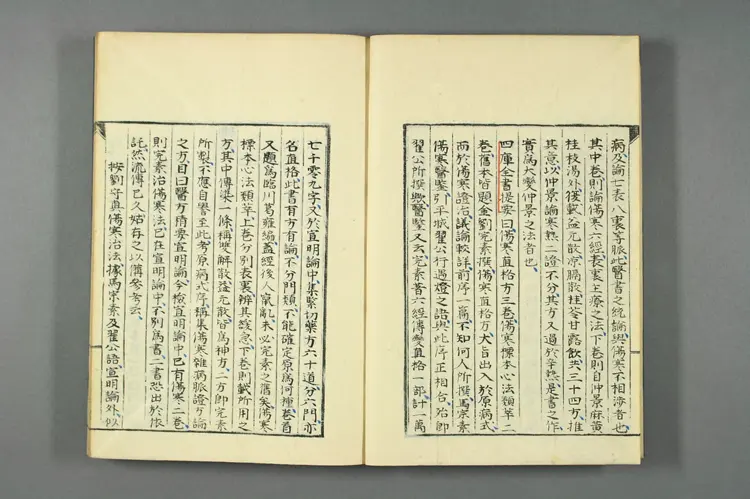 病及論七表八裏等脈此醫書之統論與傷寒不相涉者也
其中卷則論傷寒六經表裏主療之法下卷則自仲景麻黃
桂枝湯外復載益元散凉膈散桂苓甘露飲共三十四方推
其意以仲景論寒熱二證不分其方又過於辛熱是書之作
實爲大變仲景之法者也
四庫全書提要曰傷寒直格方三卷傷寒標本心法類萃二
卷舊本皆題金劉完素撰傷寒直格方大旨出入於原病式
而於傷寒證治議論較詳前序一篇不知何人所撰馬宗素
傷寒醫鑒引平城翟公行遇燈之語與此序正相合殆卽
翟公所撰歟醫鑒又云完素著六經傳變直格一部計一萬
七千零九字又於宣明論中集緊切藥方六十道分六門亦
名直格此書有方有論不分門類不能確定原爲何種卷首
又題爲臨川葛雍編蓋經後人竄亂未必完素之舊矣傷寒
標本心法類萃上卷分別表裏辨其緩急下卷則載所用之
方其中傳染一條稱雙解散益元散皆爲神方二方卽完素
所製不應自譽至此考原病式序稱集傷寒雜病脈證方論
之方目曰醫方精要宣明論今檢宣明論中已有傷寒二卷
則完素治傷寒法已在宣明論中不別爲書二書恐出於依
託然流傳已久姑存之以備參考云
按劉守眞傷寒治法據馬宗素及翟公語宣明論外似